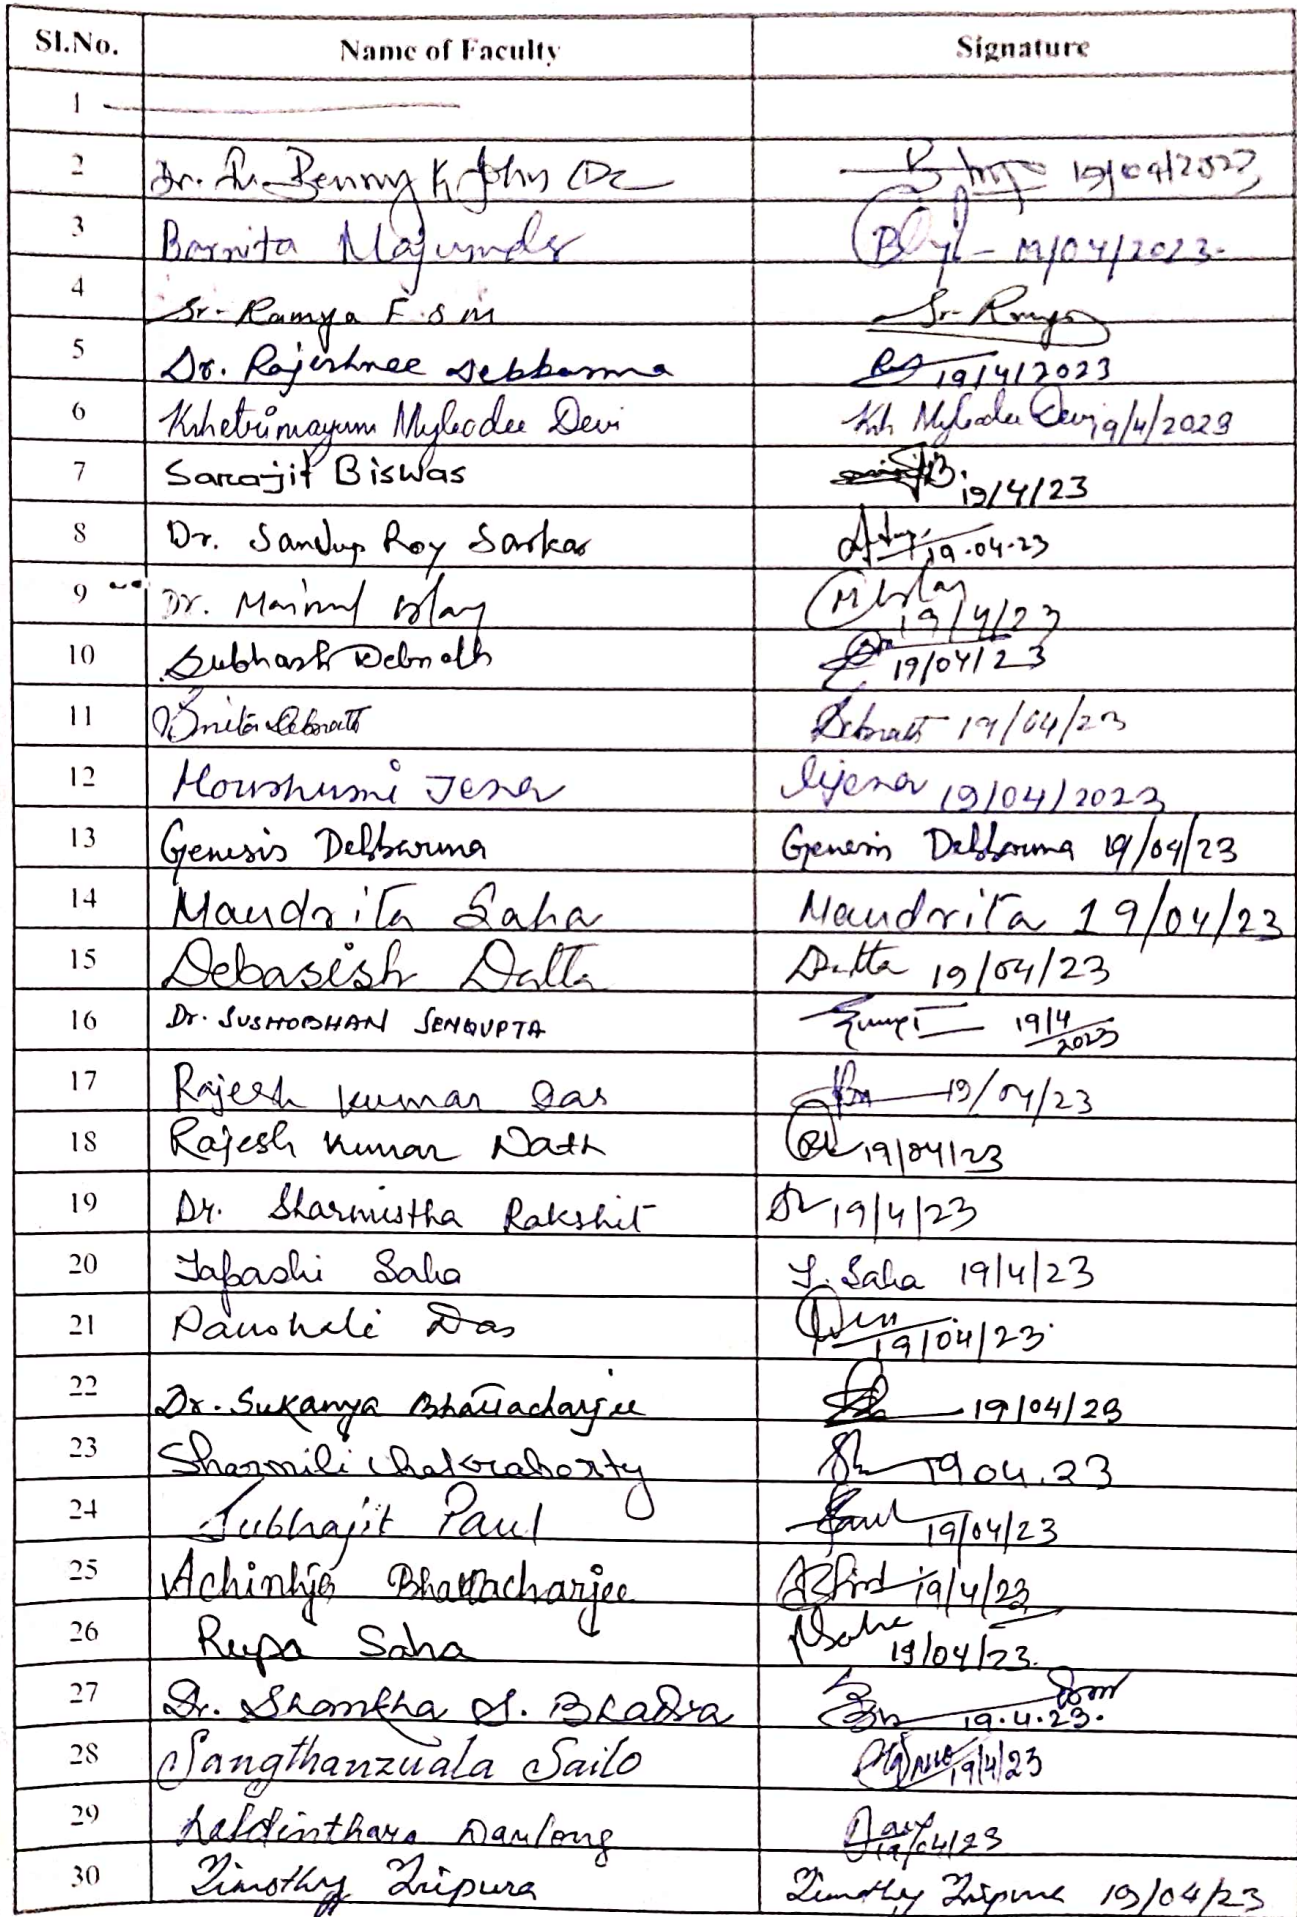 Sl.No. Name of Faculty Signature
1
2 Dr. Fr. Benny K John 19/04/2023
3 Barnita Majumder 19/04/2023.
4 Sr. Ramya F.S.M Sr. Ramya
5 Dr. Rajeshree Debbarma 19/4/2023
6 Kshetrimayum Myleadee Devi Ksh Myleadee Devi 19/4/2023
7 Sarajit Biswas 19/4/23
8 Dr. Sandip Roy Sarkar 19.04.23
9 Dr. Mainul Islam MIslam 19/4/23
10 Subhash Debnath 19/04/23
11 Debnath Debnath 19/04/23
12 Moushumi Jena Mjena 19/04/2023
13 Genesis Debbarma Genesis Debbarma 19/04/23
14 Mandrita Saha Mandrita 19/04/23
15 Debasish Datta Datta 19/04/23
16 Dr. SUSHOBHAN SENGUPTA 19/4/2023
17 Rajesh Kumar Das 19/04/23
18 Rajesh Kumar Nath 19/04/23
19 Dr. Sharmistha Rakshit 19/4/23
20 Tapashi Saha T. Saha 19/4/23
21 Paushali Das 19/04/23
22 Dr. Sukanya Bhattacharjee 19/04/23
23 Sharmili Chakraborty 19.04.23
24 Subhajit Paul Paul 19/04/23
25 Achintya Bhattacharjee 19/4/23
26 Rupa Saha RSaha 19/04/23.
27 Dr. Shankha S. Bhadra 19.4.23.
28 Sangthanzuala Sailo 19/4/23
29 Laldinthara Darlong 19/04/23
30 Timothy Tripura Timothy Tripura 19/04/23